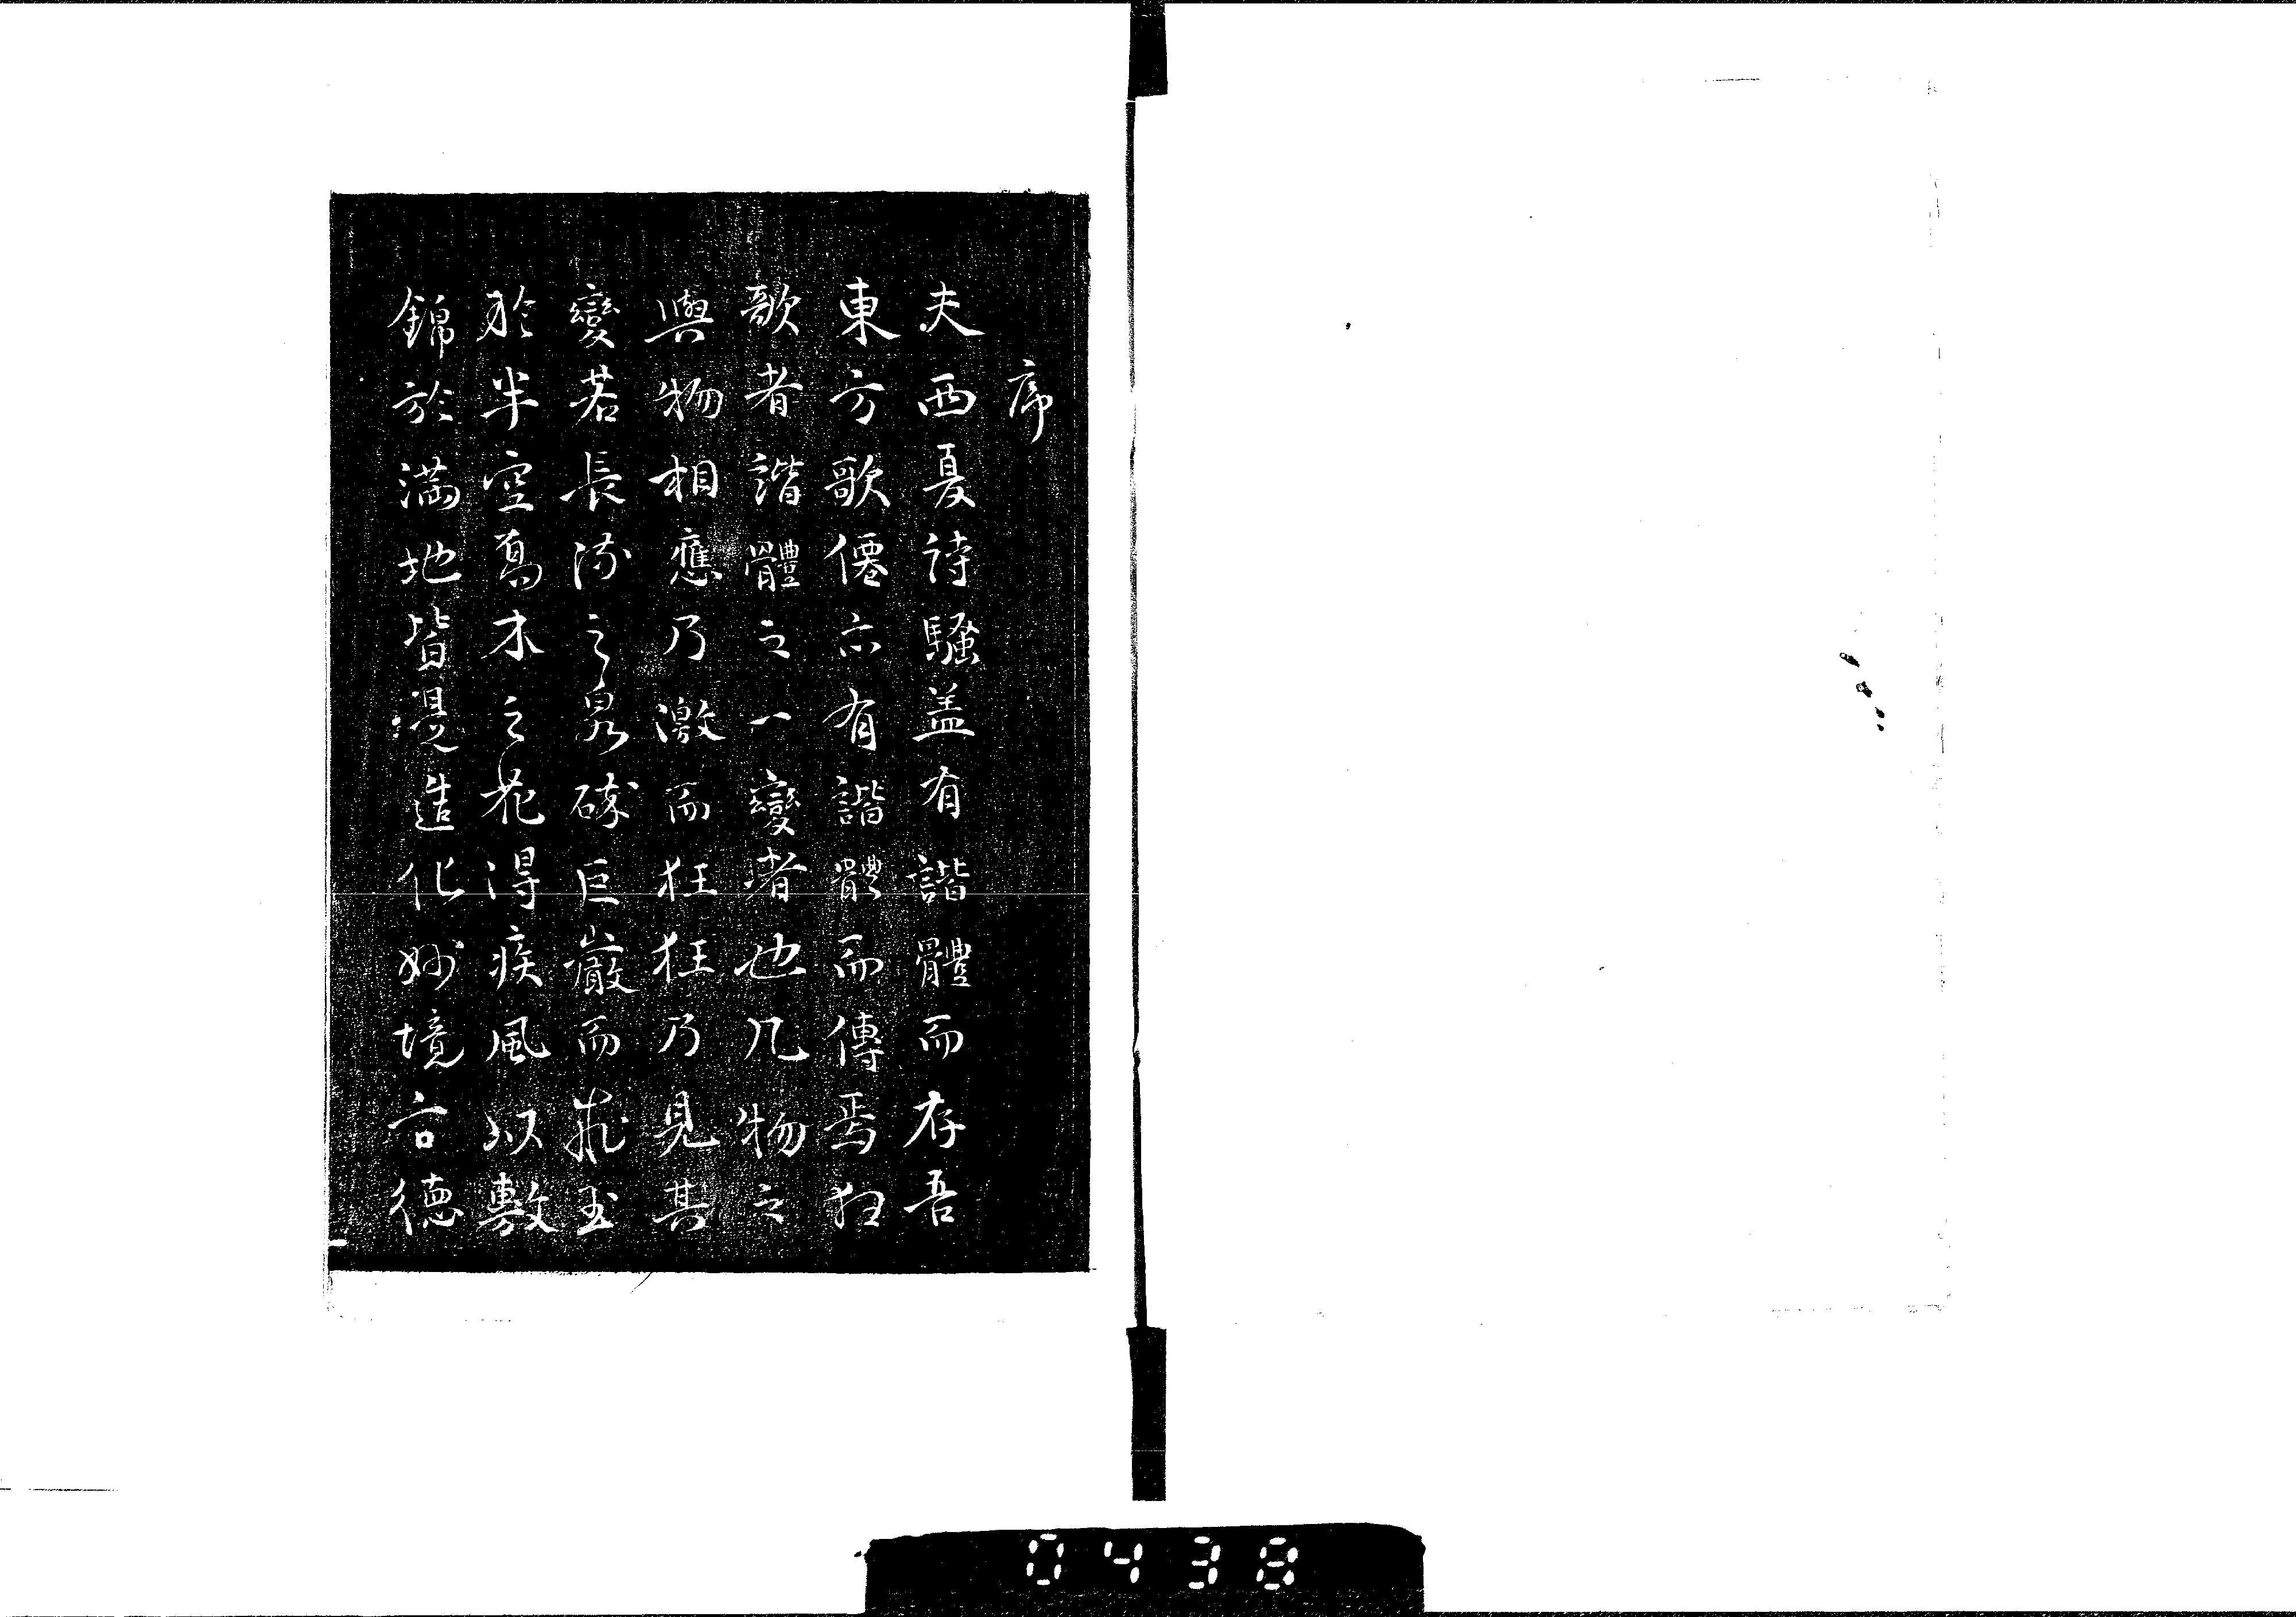 序
夫西夏詩騷蓋有諧體而存吾
東方歌僊亦有諧體而傳焉狂
歌者諧體之一變者也凡物之
與物相應乃激而狂狂乃見其
變若長流之泉碎巨巖而飛玉
於半空喬木之花得疾風以敷
錦於滿地皆是造化妙境言德
0438